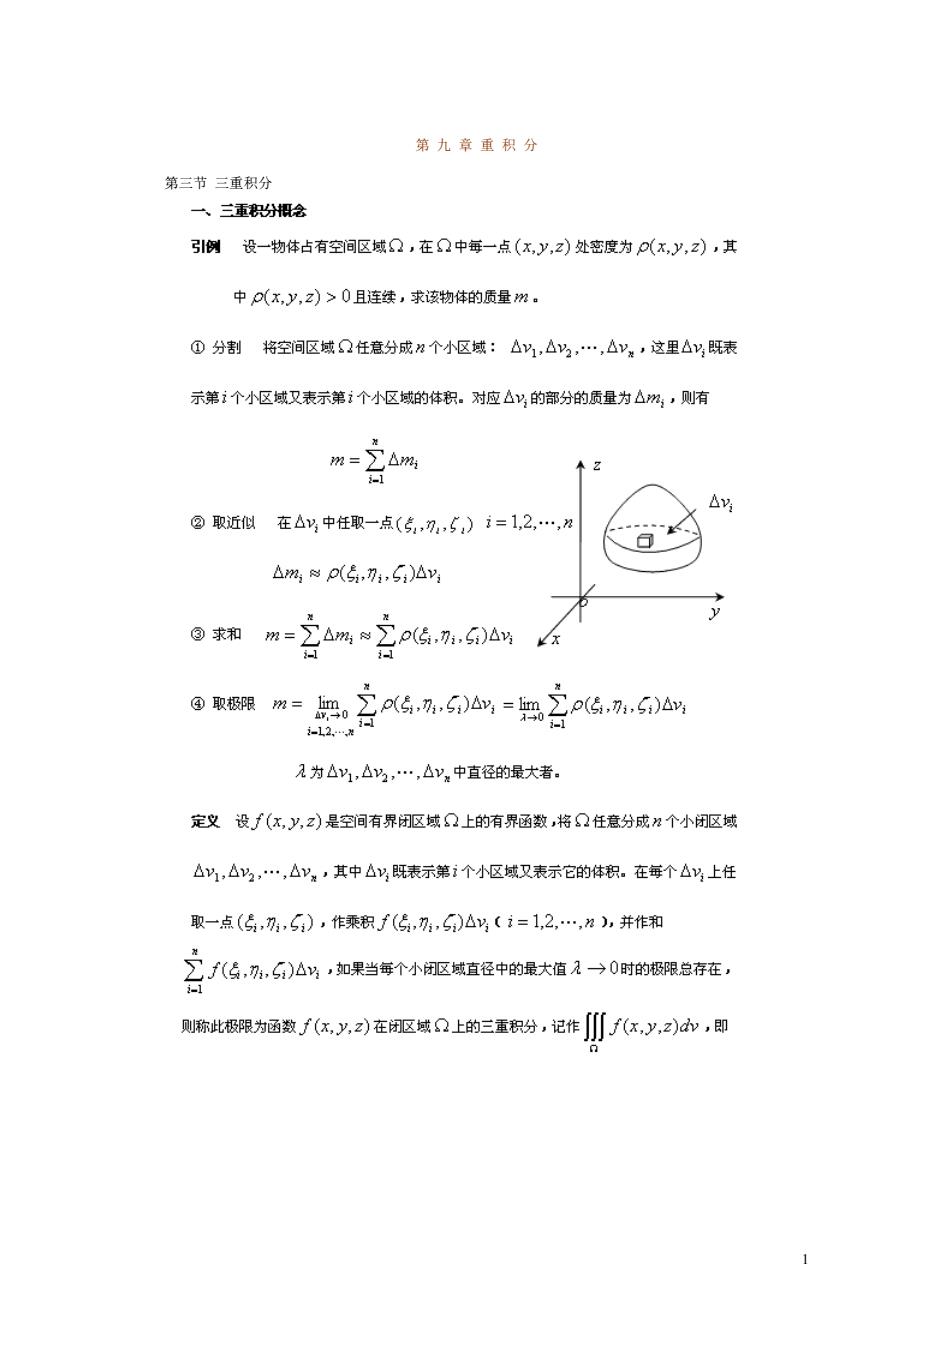 第 九 章 重 积 分
第三节 三重积分
一、三重积分概念
引例 设一物体占有空间区域Ω，在Ω中每一点(x,y,z)处密度为ρ(x,y,z)，其
中ρ(x,y,z)>0且连续，求该物体的质量m。
① 分割 将空间区域Ω任意分成n个小区域： Δv₁,Δv₂,⋯,Δvₙ，这里Δvᵢ既表
示第i个小区域又表示第i个小区域的体积。对应Δvᵢ的部分的质量为Δmᵢ，则有
m = ∑_{i=1}^{n} Δmᵢ
z
Δvᵢ
② 取近似 在Δvᵢ中任取一点(ξᵢ,ηᵢ,ζᵢ) i=1,2,⋯,n
Δmᵢ ≈ ρ(ξᵢ,ηᵢ,ζᵢ)Δvᵢ
o
y
③ 求和 m = ∑_{i=1}^{n} Δmᵢ ≈ ∑_{i=1}^{n} ρ(ξᵢ,ηᵢ,ζᵢ)Δvᵢ
x
④ 取极限 m = lim_{Δvᵢ→0, i=1,2,⋯,n} ∑_{i=1}^{n} ρ(ξᵢ,ηᵢ,ζᵢ)Δvᵢ = lim_{λ→0} ∑_{i=1}^{n} ρ(ξᵢ,ηᵢ,ζᵢ)Δvᵢ
λ为Δv₁,Δv₂,⋯,Δvₙ中直径的最大者。
定义 设f(x,y,z)是空间有界闭区域Ω上的有界函数，将Ω任意分成n个小闭区域
Δv₁,Δv₂,⋯,Δvₙ，其中Δvᵢ既表示第i个小区域又表示它的体积。在每个Δvᵢ上任
取一点(ξᵢ,ηᵢ,ζᵢ)，作乘积f(ξᵢ,ηᵢ,ζᵢ)Δvᵢ（i=1,2,⋯,n），并作和
∑_{i=1}^{n} f(ξᵢ,ηᵢ,ζᵢ)Δvᵢ，如果当每个小闭区域直径中的最大值λ→0时的极限总存在，
则称此极限为函数f(x,y,z)在闭区域Ω上的三重积分，记作∭_Ω f(x,y,z)dv，即
1